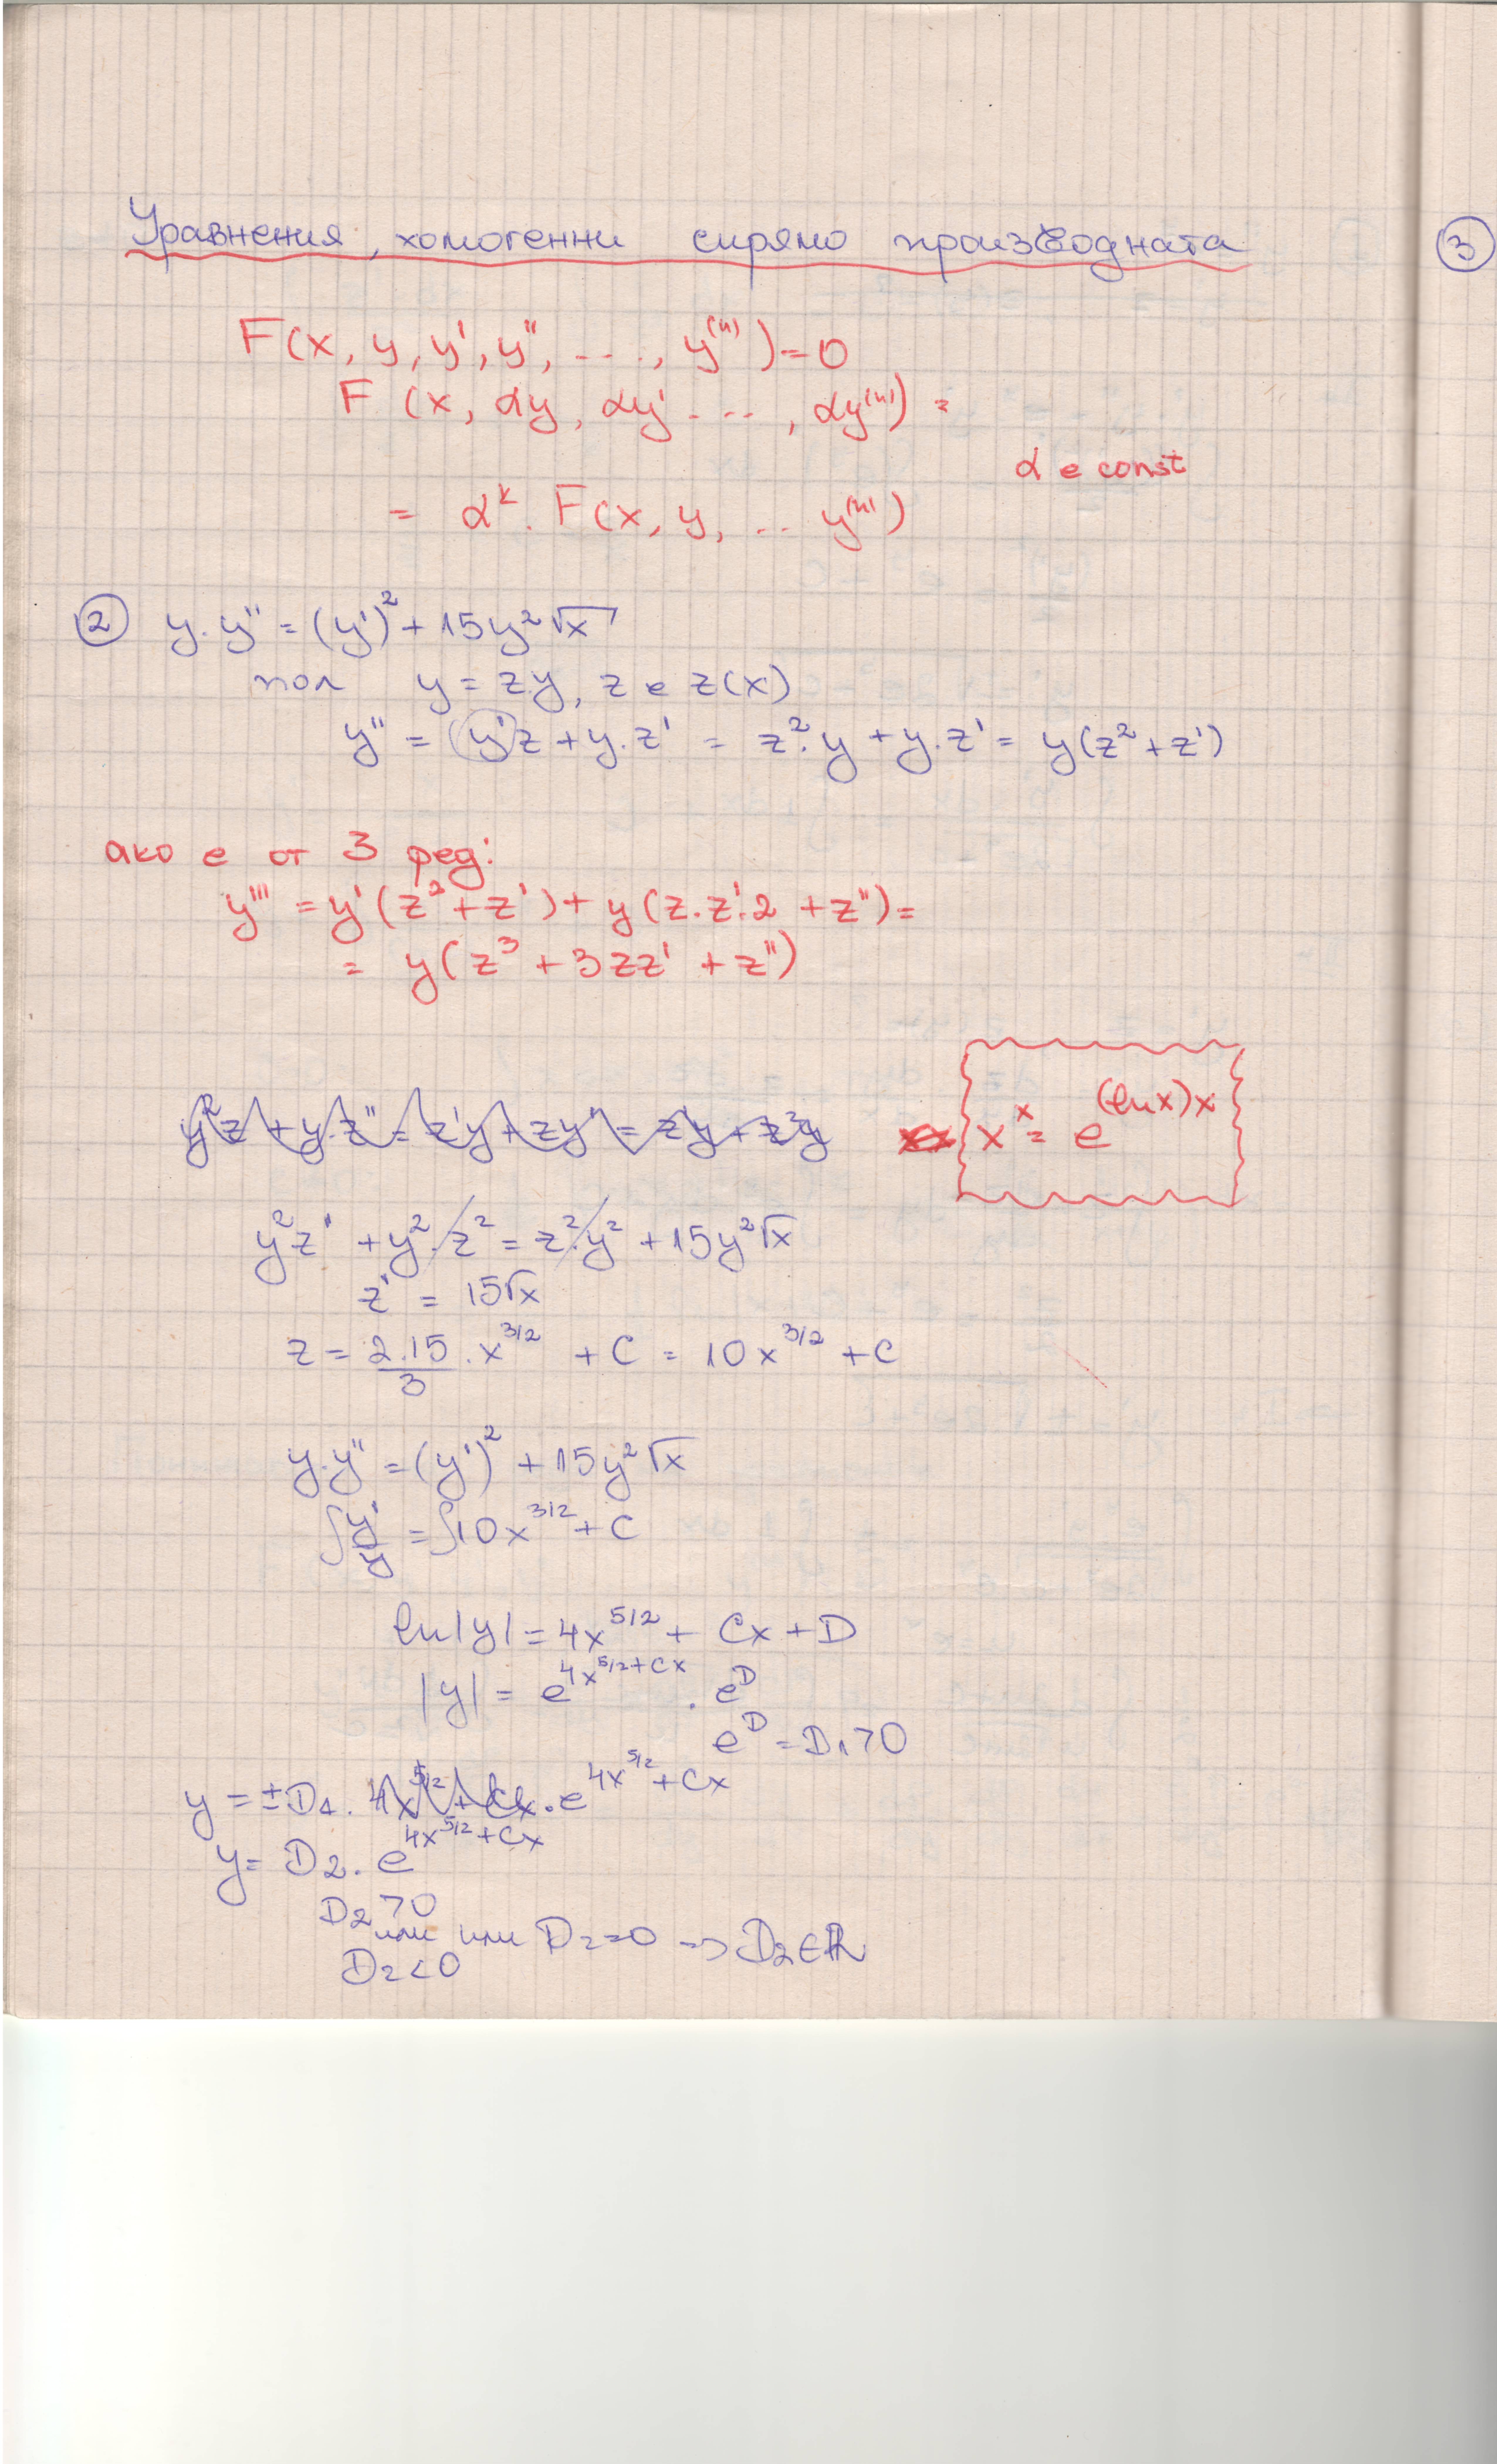 Уравнения, хомогенни спрямо производната
③
F(x, y, y', y'', ...., y⁽ⁿ⁾) = 0
F (x, αy, αy' ..., αy⁽ⁿ⁾) =
α e const
= αᵏ. F(x, y, ... y⁽ⁿ⁾)
② y.y'' = (y')² + 15y²√x
пол y = zy, z e z(x)
y'' = (y')z + y.z' = z².y + y.z' = y(z² + z')
ако е от 3 ред:
y''' = y'(z² + z') + y(z.z'.2 + z'') =
= y(z³ + 3zz' + z'')
xˣ = e^(lnx)x
y²z' + y².z² = z².y² + 15y²√x
z' = 15√x
z = 2.15/3 . x^3/2 + C = 10x^3/2 + C
y.y'' = (y')² + 15y²√x
∫y'/y = ∫10x^3/2 + C
ln|y| = 4x^5/2 + Cx + D
|y| = e^4x^5/2+Cx . e^D
e^D = D₁ > 0
y = ±D₁. e^4x^5/2+Cx
y = D₂. e^4x^5/2+Cx
D₂ > 0
или или D₂ = 0 => D₂ ∈ ℝ
D₂ < 0